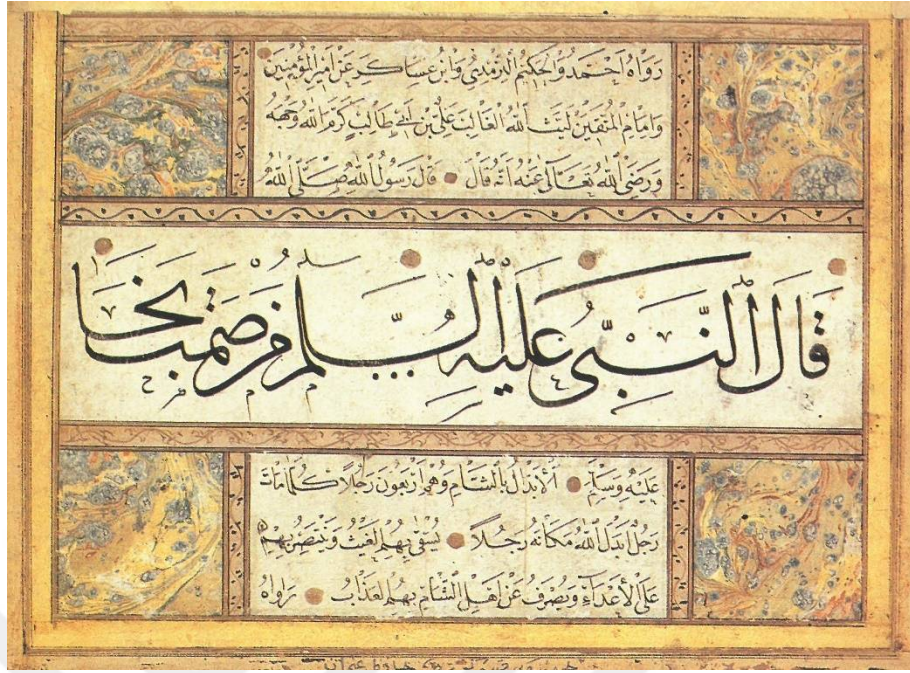 رَوَاهُ اَحْمَدُ وَالْحَكِيمُ التِّرْمِذِيُّ وَابْنُ عَسَاكِرَ عَنْ اَمِيرِ الْمُؤْمِنِينَ
وَاِمَامِ الْمُتَّقِينَ لَيْثِ اللّٰهِ الْغَالِبِ عَلِيِّ بْنِ اَبِي طَالِبٍ كَرَّمَ اللّٰهُ وَجْهَهُ
وَرَضِيَ اللّٰهُ تَعَالٰى عَنْهُ اَنَّهُ قَالَ قَالَ رَسُولُ اللّٰهِ صَلَّى اللّٰهُ
قَالَ النَّبِيُّ عَلَيْهِ السَّلَامُ مَنْ صَمَتَ نَجَا
عَلَيْهِ وَسَلَّمَ اَلْاَبْدَالُ بِالشَّامِ وَهُمْ اَرْبَعُونَ رَجُلًا كُلَّمَا مَاتَ
رَجُلٌ اَبْدَلَ اللّٰهُ مَكَانَهُ رَجُلًا يُسْقٰى بِهِمُ الْغَيْثُ وَيُنْتَصَرُ بِهِمْ
عَلَى الْاَعْدَاءِ وَيُصْرَفُ عَنْ اَهْلِ الشَّامِ بِهِمُ الْعَذَابُ رَوَاهُ